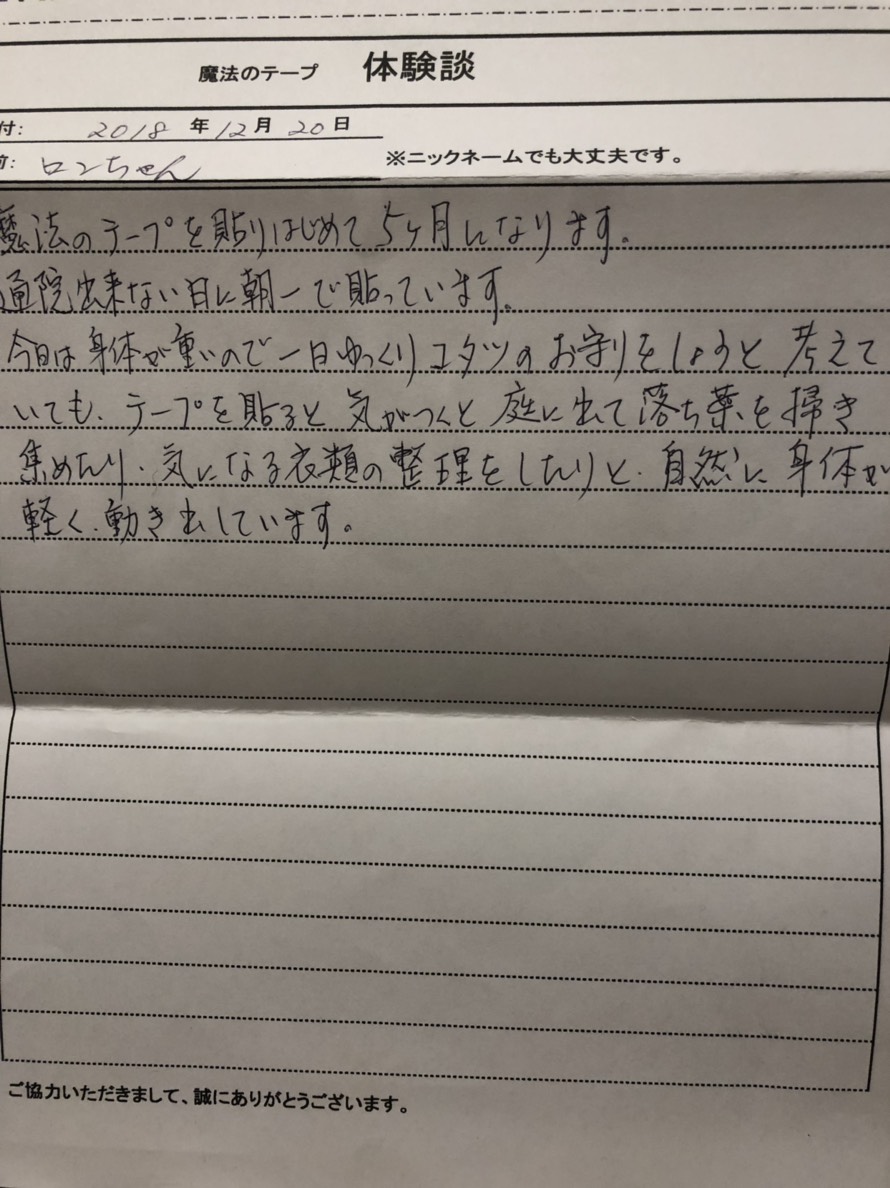 魔法のテープ 体験談
付: 2018 年 12 月 20 日
前: ロンちゃん ※ニックネームでも大丈夫です。
魔法のテープを貼りはじめて5ヶ月になります。
通院出来ない日に朝一で貼っています。
今日は身体が重いので一日ゆっくりコタツのお守りをしようと考えて
いても、テープを貼ると気がつくと庭に出て落ち葉を掃き
集めたり、気になる衣類の整理をしたりと、自然に身体が
軽く、動き出しています。
ご協力いただきまして、誠にありがとうございます。